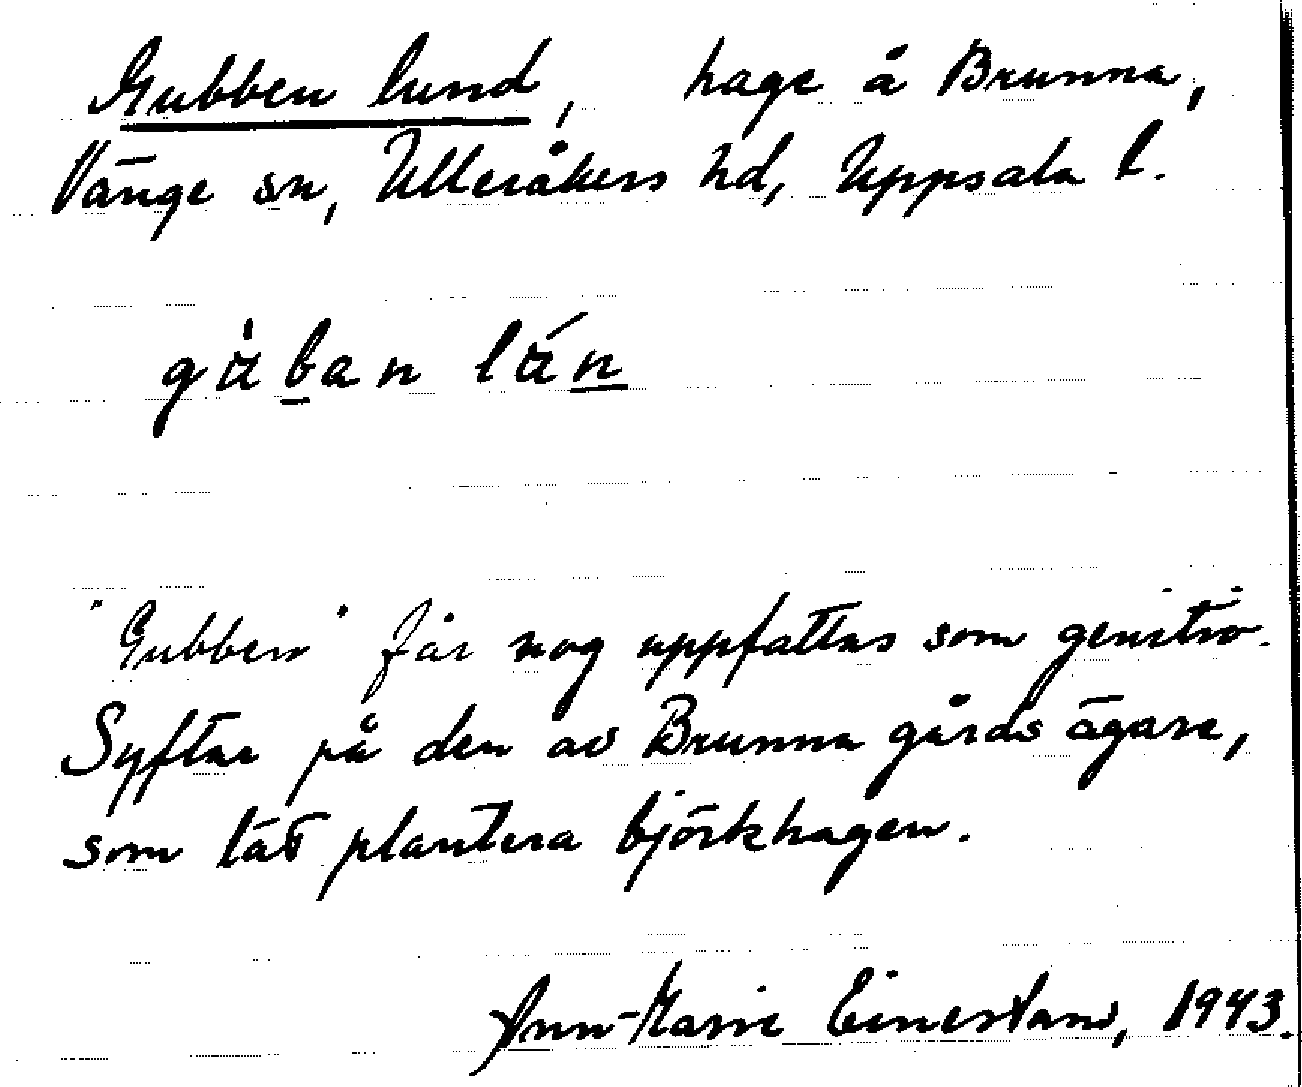 Gubben lund, hage å Brunna,
Vänge sn, Ulleråkers hd, Uppsala l.
gu̇ban lún
"Gubben" får nog uppfattas som genitiv.
Syftar på den av Brunna gårds ägare,
som lät plantera björkhagen.
Ann-Marie Einerstam, 1943.